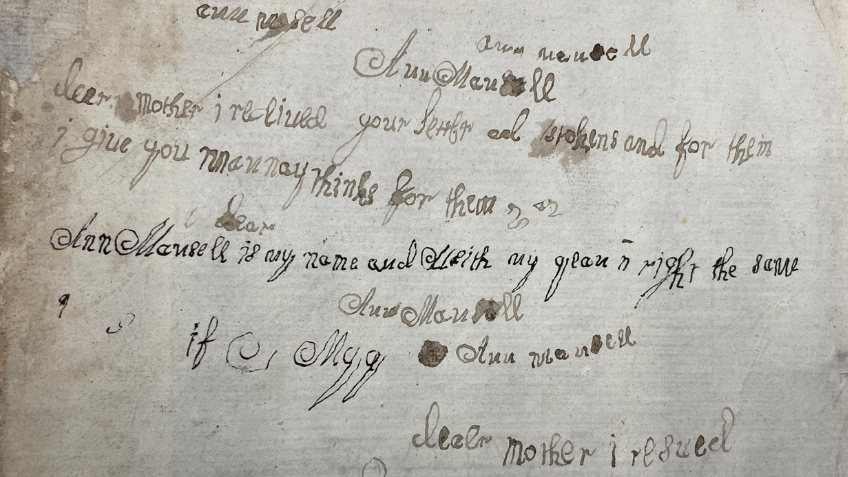 ann mansell
ann mansell
Ann Mansell
dear mother i reciued your letter and tokens and for them
i giue you mannay thinks for them
dear
Ann Mansell is my name and With my pean n right the same
Ann Mansell
if
Ann mansell
dear mother i resued